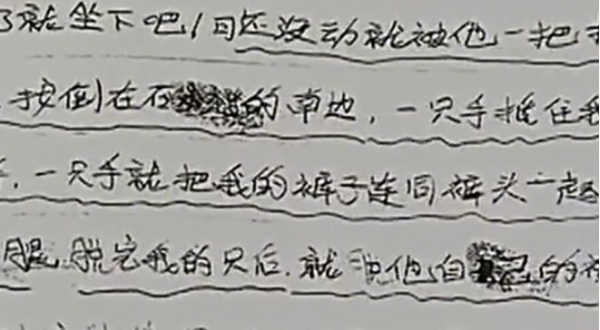 了就坐下吧,间还没动就被他一把
按倒在石的草地,一只手抓住我
,一只手就把我的裤子连同裤头一起
腿,脱完我的只后.就把他自的